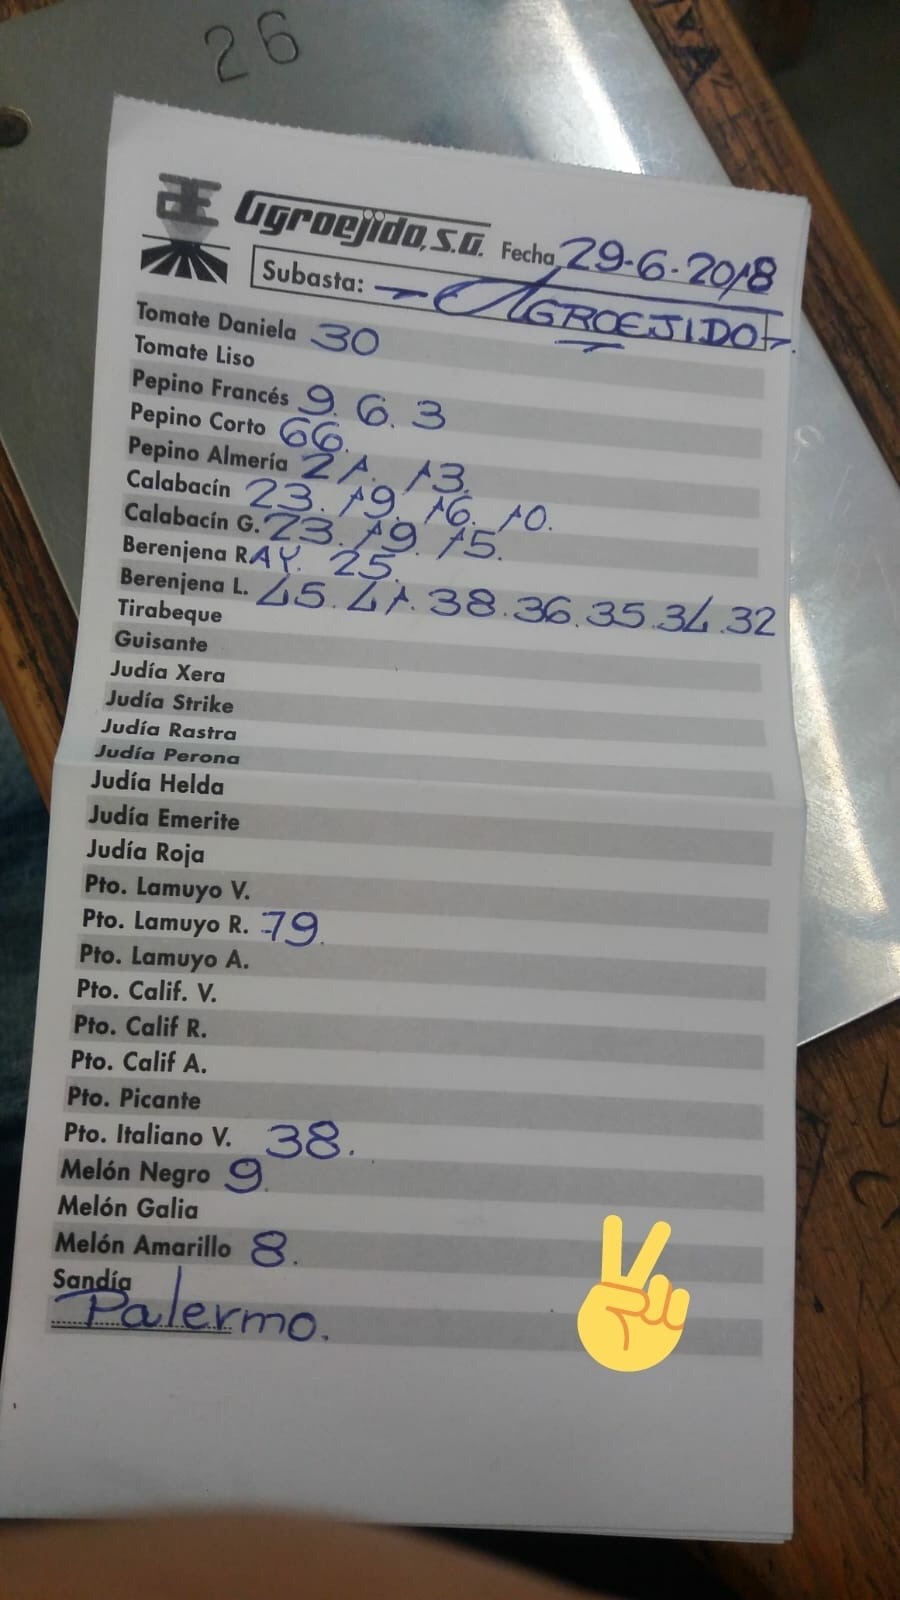 26
Agroejido, S.A. Fecha 29-6-2018
Subasta: AGROEJIDO
Tomate Daniela 30
Tomate Liso
Pepino Francés 9. 6. 3
Pepino Corto 66.
Pepino Almería 21. 13.
Calabacín 23. 19. 16. 10.
Calabacín G. 23. 19. 15.
Berenjena RAY. 25.
Berenjena L. 45. 41. 38. 36. 35. 34. 32
Tirabeque
Guisante
Judía Xera
Judía Strike
Judía Rastra
Judía Perona
Judía Helda
Judía Emerite
Judía Roja
Pto. Lamuyo V.
Pto. Lamuyo R. 79.
Pto. Lamuyo A.
Pto. Calif. V.
Pto. Calif R.
Pto. Calif A.
Pto. Picante
Pto. Italiano V. 38.
Melón Negro 9.
Melón Galia
Melón Amarillo 8.
Sandía
Palermo.